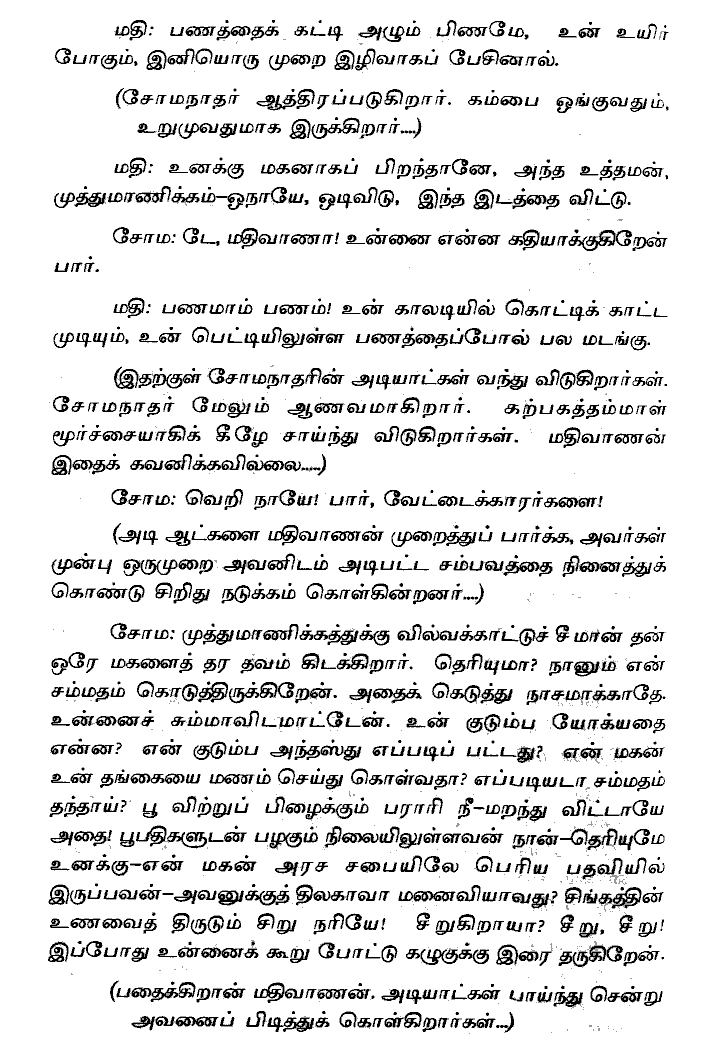 மதி: பணத்தைக் கட்டி அழும் பிணமே, உன் உயிர்
போகும், இனியொரு முறை இழிவாகப் பேசினால்.
(சோமநாதர் ஆத்திரப்படுகிறார். கம்பை ஒங்குவதும்,
உறுமுவதுமாக இருக்கிறார்....)
மதி: உனக்கு மகனாகப் பிறந்தானே, அந்த உத்தமன்,
முத்துமாணிக்கம்—ஒநாயே, ஒடிவிடு, இந்த இடத்தை விட்டு.
சோம: டே, மதிவாணா! உன்னை என்ன கதியாக்குகிறேன்
பார்.
மதி: பணமாம் பணம்! உன் காலடியில் கொட்டிக் காட்ட
முடியும், உன் பெட்டியிலுள்ள பணத்தைப்போல் பல மடங்கு.
(இதற்குள் சோமநாதரின் அடியாட்கள் வந்து விடுகிறார்கள்.
சோமநாதர் மேலும் ஆணவமாகிறார். கற்பகத்தம்மாள்
மூர்ச்சையாகிக் கீழே சாய்ந்து விடுகிறார்கள். மதிவாணன்
இதைக் கவனிக்கவில்லை.....)
சோம: வெறி நாயே! பார், வேட்டைக்காரர்களை!
(அடி ஆட்களை மதிவாணன் முறைத்துப் பார்க்க, அவர்கள்
முன்பு ஒருமுறை அவனிடம் அடிபட்ட சம்பவத்தை நினைத்துக்
கொண்டு சிறிது நடுக்கம் கொள்கின்றனர்....)
சோம: முத்துமாணிக்கத்துக்கு வில்வக்காட்டுச் சீமான் தன்
ஒரே மகளைத் தர தவம் கிடக்கிறார். தெரியுமா? நானும் என்
சம்மதம் கொடுத்திருக்கிறேன். அதைக் கெடுத்து நாசமாக்காதே.
உன்னைச் சும்மாவிடமாட்டேன். உன் குடும்ப யோக்யதை
என்ன? என் குடும்ப அந்தஸ்து எப்படிப் பட்டது? என் மகன்
உன் தங்கையை மணம் செய்து கொள்வதா? எப்படியடா சம்மதம்
தந்தாய்? பூ விற்றுப் பிழைக்கும் பராரி நீ—மறந்து விட்டாயே
அதை! பூபதிகளுடன் பழகும் நிலையிலுள்ளவன் நான்—தெரியுமே
உனக்கு—என் மகன் அரச சபையிலே பெரிய பதவியில்
இருப்பவன்—அவனுக்குத் திலகாவா மனைவியாவது? சிங்கத்தின்
உணவைத் திருடும் சிறு நரியே! சீறுகிறாயா? சீறு, சீறு!
இப்போது உன்னைக் கூறு போட்டு கழுகுக்கு இரை தருகிறேன்.
(பதைக்கிறான் மதிவாணன். அடியாட்கள் பாய்ந்து சென்று
அவனைப் பிடித்துக் கொள்கிறார்கள்...)